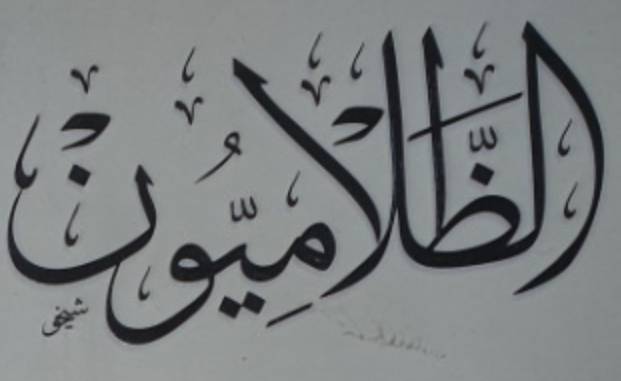 الظَّلامِيُّون
شيخي